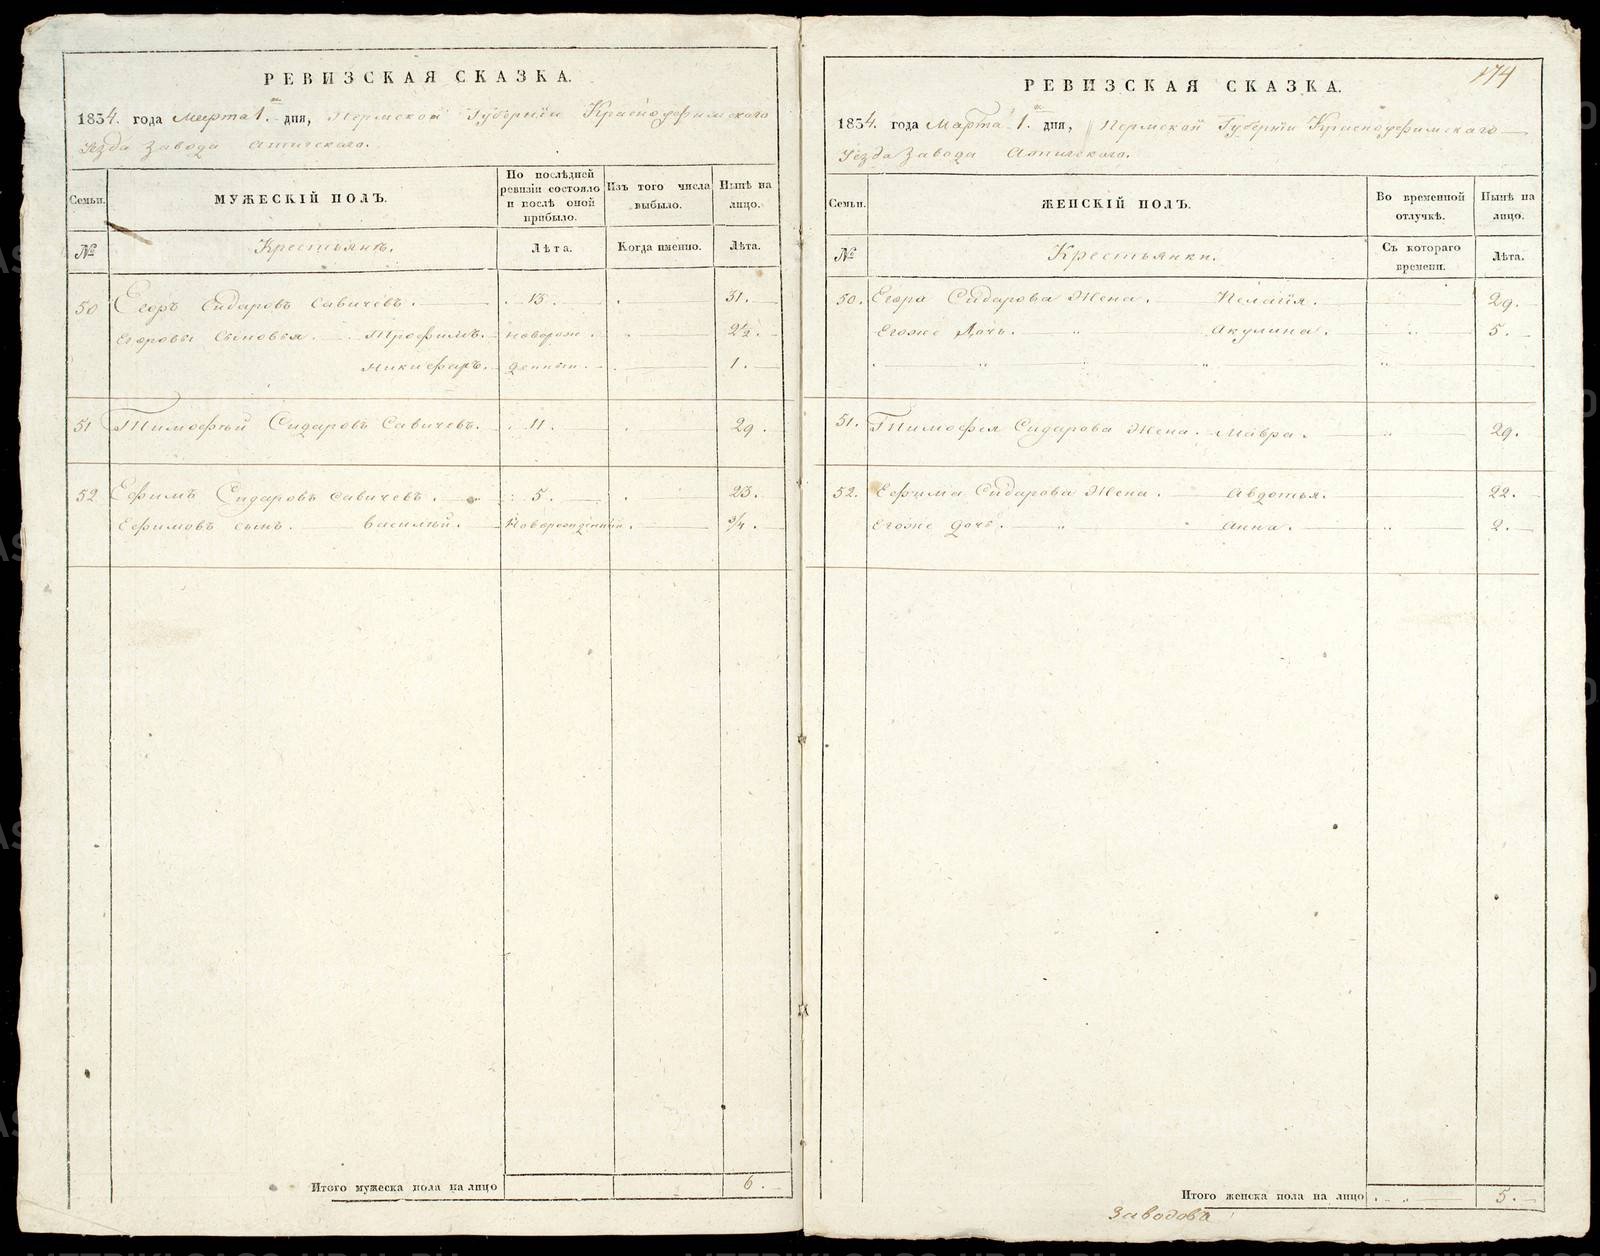 РЕВИЗСКАЯ СКАЗКА.
1834. года марта 1.го дня, Пермской Губернiи Красноуфимского
Уезда Завода Атигского.
Семьи. МУЖЕСКIЙ ПОЛЪ. По последней ревизiи состояло и послѣ оной прибыло. Изъ того числа выбыло. Нынѣ на лицо.
№ Крестьянъ. Лѣта. Когда именно. Лѣта.
50 Егоръ Сидаровъ Савичевъ. 13. 31.
Егоровы Сыновья. Трофимъ. новорож 2½.
Никифаръ. денныи. 1.
51 Тимофѣй Сидаровъ Савичевъ. 11. 29.
52 Ефимъ Сидаровъ Савичевъ. 5. 23.
Ефимовъ сынъ. Василiй. Новорожденныи. ¾.
Итого мужеска пола на лицо 6.
174
РЕВИЗСКАЯ СКАЗКА.
1834. года Марта 1.го дня, Пермской Губернiи Красноуфимскаго
Уезда Завода Атигскаго.
Семьи. ЖЕНСКIЙ ПОЛЪ. Во временной отлучкѣ. Нынѣ на лицо.
№ Крестьянки. Съ котораго времени. Лѣта.
50. Егора Сидарова Жена. Пелагiя. 29.
Егоже Дочь. " Акулина. " 5.
51. Тимофея Сидарова Жена. Мавра. " 29.
52. Ефима Сидарова Жена. Авдотья. 22.
Егоже дочь. " Анна. " 2.
Итого женска пола на лицо 5.
Заводовъ